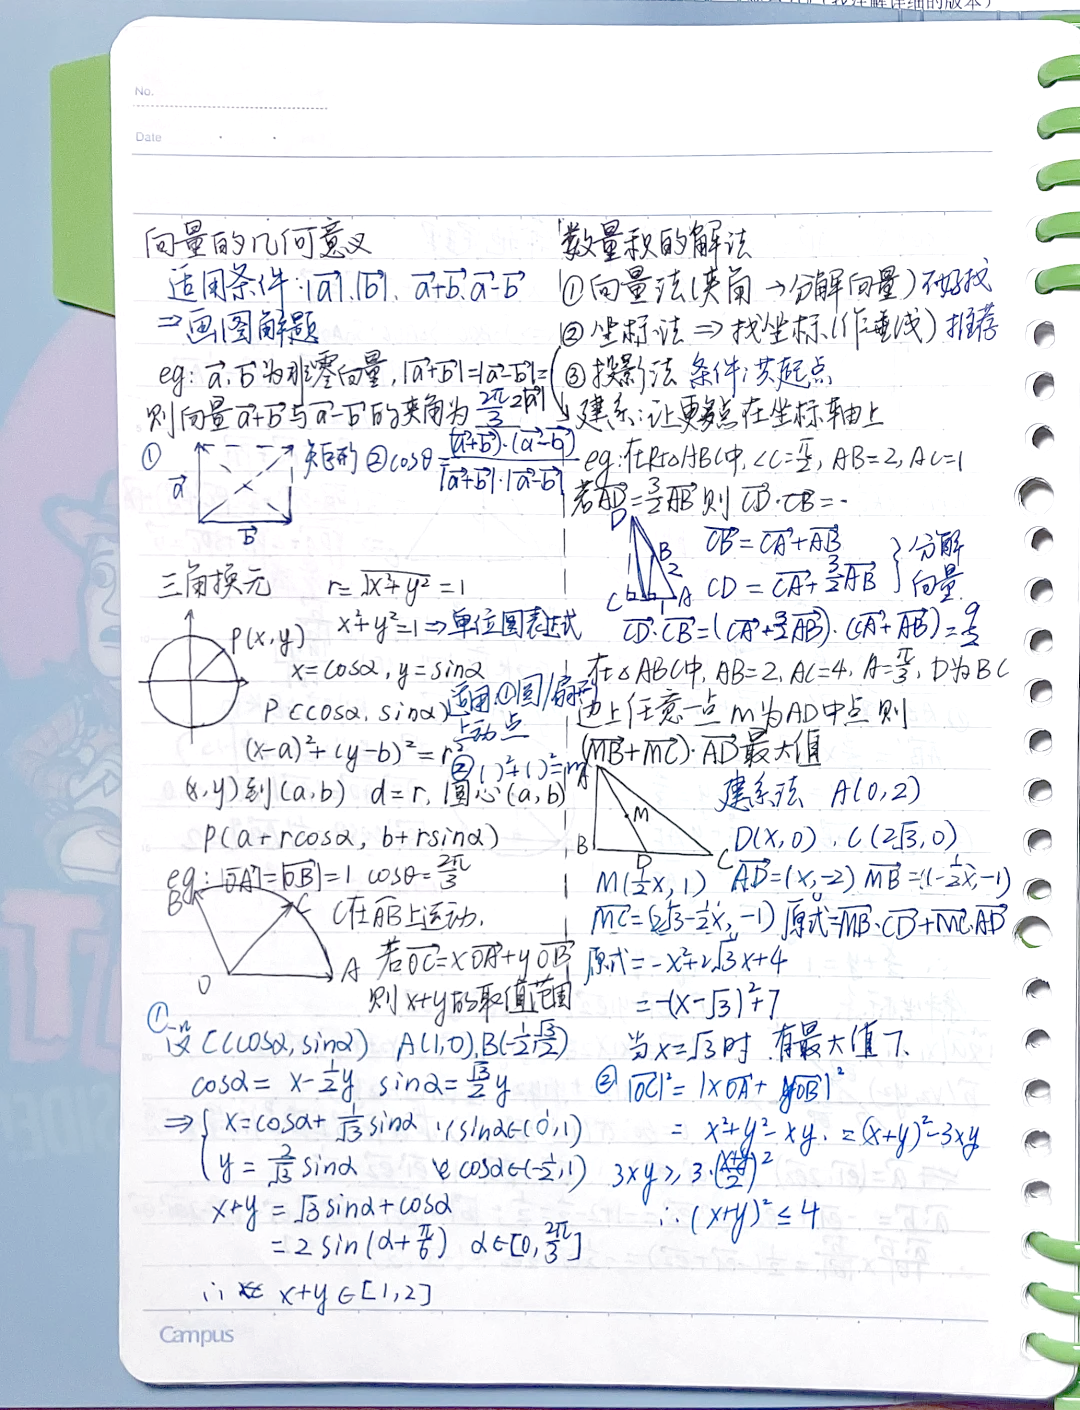 No.
Date
向量的几何意义
适用条件:|a⃗|.|b⃗|、a⃗+b⃗.a⃗-b⃗
⇒画图解题
eg: a⃗、b⃗为非零向量,|a⃗+b⃗|=|a⃗-b⃗|=
2|a⃗|
则向量a⃗+b⃗与a⃗-b⃗的夹角为 2π/3
① 矩形 ②cosθ=(a⃗+b⃗)·(a⃗-b⃗)/|a⃗+b⃗|·|a⃗-b⃗|
a⃗
b⃗
三角换元 r=√x²+y²=1
x²+y²=1⇒单位圆表达式
P(x,y)
x=cosα, y=sinα
P(cosα, sinα) 适用:①圆/扇形
上动点
(x-a)²+(y-b)²=r²
②( )²+( )²=m
(x,y)到(a,b) d=r, 圆心(a,b)
P(a+rcosα, b+rsinα)
eg: |OA⃗|=|OB⃗|=1 cosθ=2π/3
B C C在AB上运动.
若OC⃗=xOA⃗+yOB⃗
O A
则x+y的取值范围
①设C(cosα,sinα) A(1,0),B(-1/2,√3/2)
cosα= x-1/2y sinα=√3/2y
⇒{x=cosα+1/√3 sinα ∵sinα∈(0,1)
y=2/√3 sinα cosα∈(-1/2,1)
x+y=√3sinα+cosα
=2sin(α+π/6) α∈[0,2π/3]
∴ x+y∈[1,2]
数量积的解法
①向量法(夹角→分解向量)不好找
②坐标法⇒找坐标(作垂线)推荐
③投影法 条件:共起点
建系:让更多点在坐标轴上
eg:在Rt△ABC中,∠C=π/2, AB=2, AC=1
若AD⃗=3/2AB⃗则CD⃗·CB⃗=-
D
B
2
C 1 A
CB⃗=CA⃗+AB⃗
CD=CA⃗+3/2AB⃗
}分解
向量
CD⃗·CB⃗=(CA⃗+3/2AB⃗)·(CA⃗+AB⃗)=9/2
在△ABC中, AB=2, AC=4, A=π/3, D为BC
边上任意一点M为AD中点则
(MB⃗+MC⃗)·AD⃗最大值
A
M
B D C
建系法 A(0,2)
D(x,0). C(2√3,0)
M(1/2x,1) AD⃗=(x,-2) MB⃗=(-1/2x,-1)
MC⃗=(2√3-1/2x,-1) 原式=MB⃗·CD⃗+MC⃗·AD⃗
原式=-x²+2√3x+4
=-(x-√3)²+7
当x=√3时 有最大值7.
② |OC⃗|²=|xOA⃗+yOB⃗|²
= x²+y²-xy. =(x+y)²-3xy
3xy≥3·(x+y/2)²
∴(x+y)²≤4
Campus